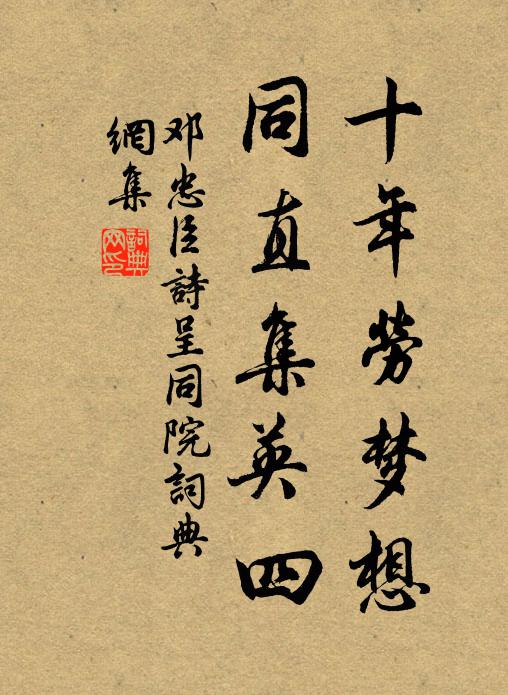 十年劳梦想
同直集英四
邓忠臣詩呈同院詞典
網集
詞典
网印